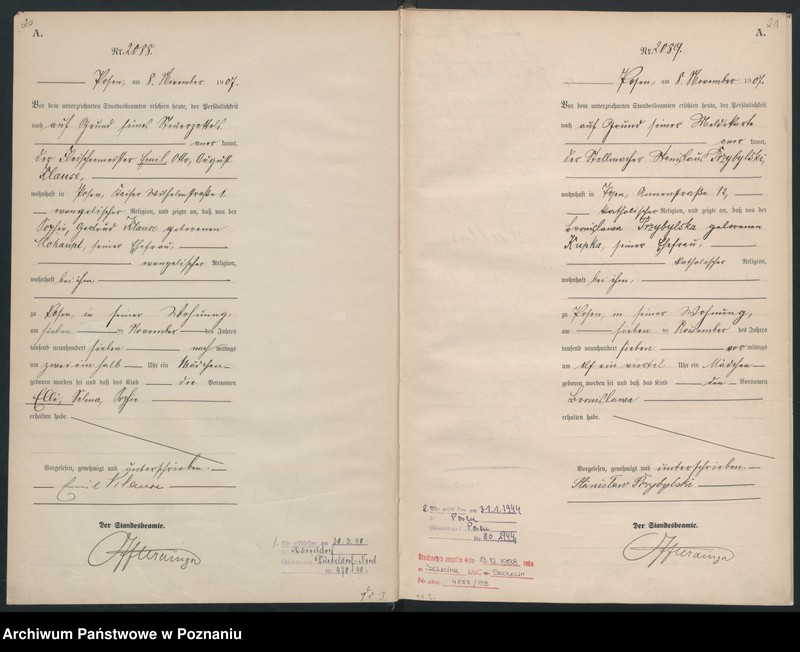 20
A.
Nr. 2088.
Posen, am 8. November 1907.
Vor dem unterzeichneten Standesbeamten erschien heute, der Persönlichkeit
nach auf Grund seines Steuerzettels
aner kannt,
der Fleischermeister Emil, Otto, August
Klause,
wohnhaft in Posen, Kaiser Wilhelmstraße 1.
evangelischer Religion, und zeigte an, daß von der
Sophie, Gertrud Klause geborenen
Mohaupt, seiner Ehefrau,
evangelischer Religion,
wohnhaft bei ihm
zu Posen, in seiner Wohnung,
am sieben ten November des Jahres
tausend neunhundert sieben nach mittags
um zwei ein halb Uhr ein Mädchen
geboren worden sei und daß das Kind die Vornamen
Elli, Selma, Sophie
erhalten habe.
Vorgelesen, genehmigt und unterschrieben.
Emil Klause
Der Standesbeamte.
1.
am 30.3.40
Düsseldorf
Düsseldorf-Nord
Nr. 478/40
21
A.
Nr. 2089.
Posen, am 8. November 1907.
Vor dem unterzeichneten Standesbeamten erschien heute, der Persönlichkeit
nach auf Grund seiner Meldekarte
aner kannt,
der Stellmacher Stanislaus Przybylski,
wohnhaft in Posen, Annenstraße 12,
katholischer Religion, und zeigte an, daß von der
Bronislawa Przybylska geborenen
Krupka, seiner Ehefrau,
katholischer Religion,
wohnhaft bei ihm,
zu Posen, in seiner Wohnung,
am sieben ten November des Jahres
tausend neunhundert sieben vor mittags
um elf ein viertel Uhr ein Mädchen
geboren worden sei und daß das Kind den Vornamen
Bronislawa
erhalten habe.
Vorgelesen, genehmigt und unterschrieben
Stanisław Przybylski
Der Standesbeamte.
2. am 31.1.1944
in Posen
Posen
Nr. 80/1944
13.12.1988 roku
w Szczecinie USC Szczecin
Nr aktu
Archiwum Państwowe w Poznaniu